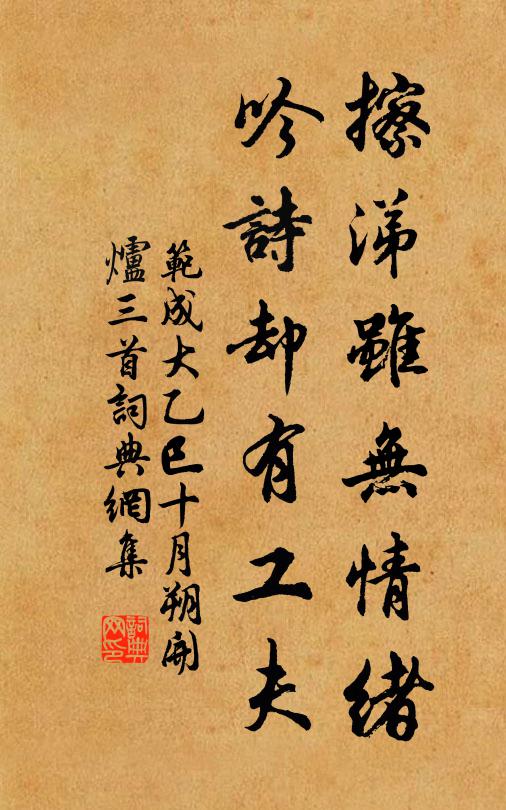 擦涕雖無情緒
吟詩却有工夫
範成大乙巳十月朔開
爐三首詞典網集
詞典
网印